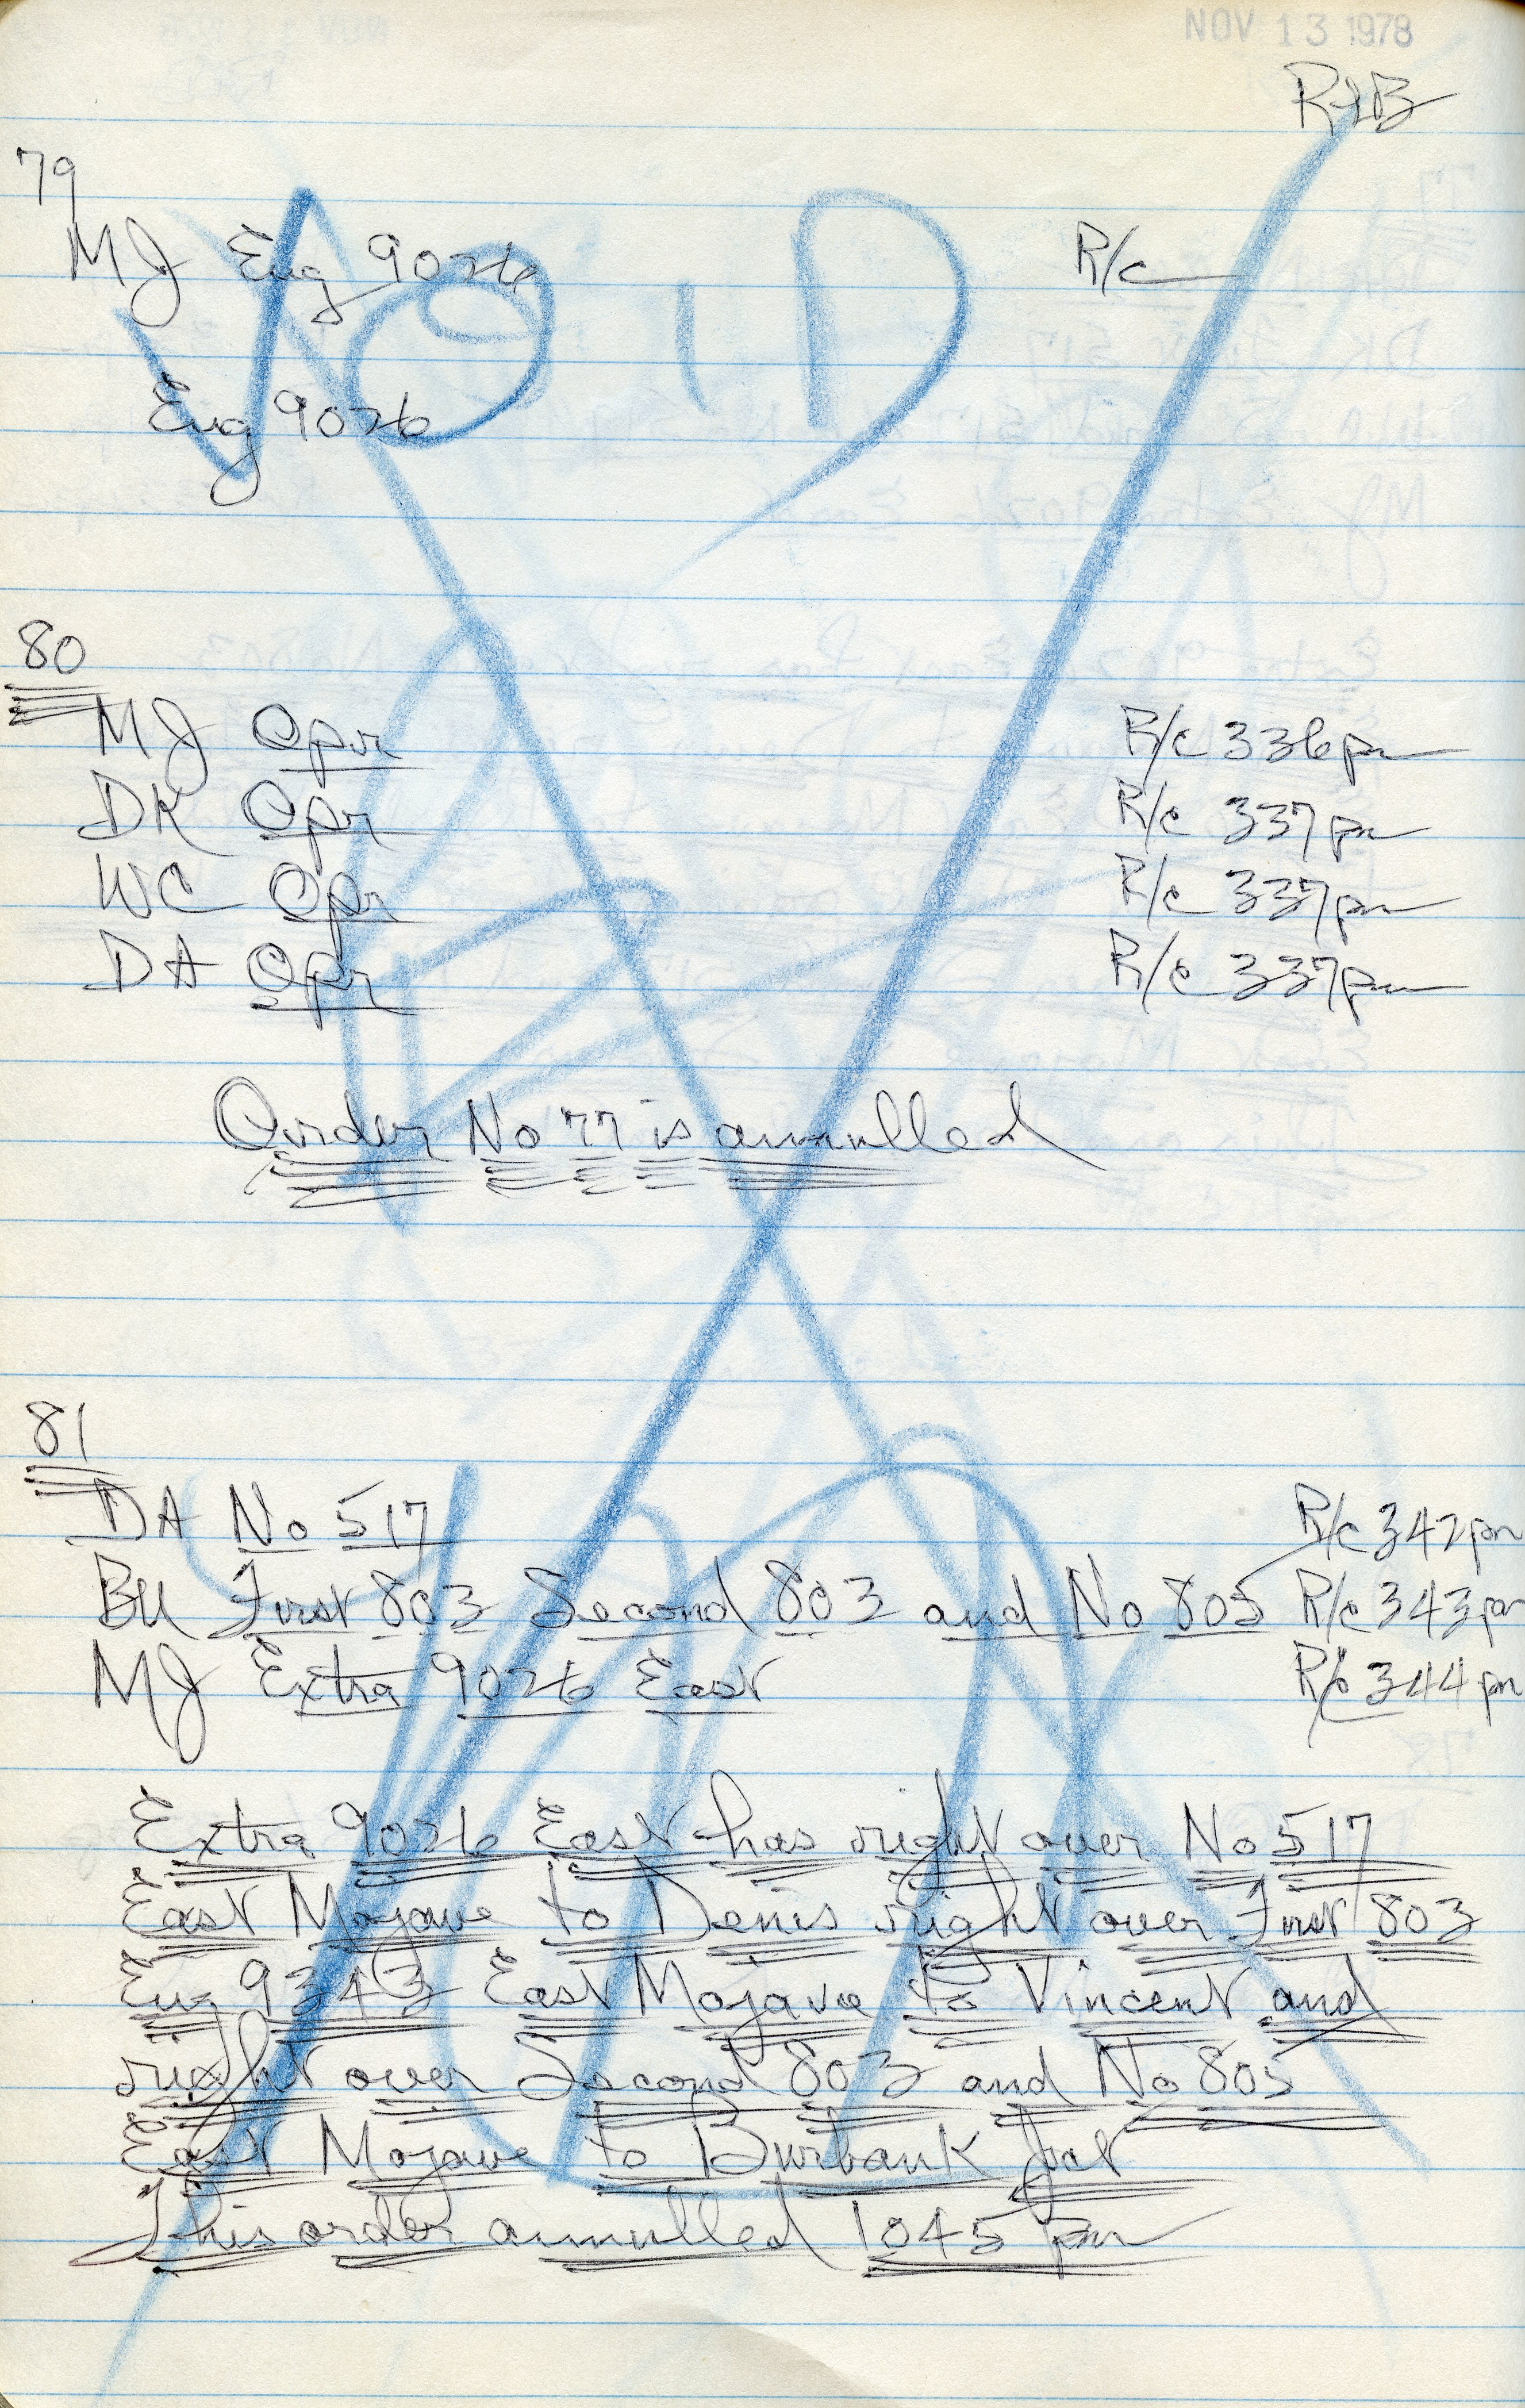 NOV 13 1978
RLB
79
VOID
MJ Eng 9026 R/c
Eng 9026
80
MJ Opr R/c 336pm
DK Opr R/c 337pm
WC Opr R/c 337pm
DA Opr R/c 337pm
Order No 77 is annulled
81
DA No 517 R/c 342pm
BU First 803 Second 803 and No 805 R/c 343pm
MJ Extra 9026 East R/c 344pm
Extra 9026 East has right over No 517
East Mojave to Denis right over First 803
Eng 9343 East Mojave to Vincent and
right over Second 803 and No 805
East Mojave to Burbank Jct
This order annulled 1045 pm